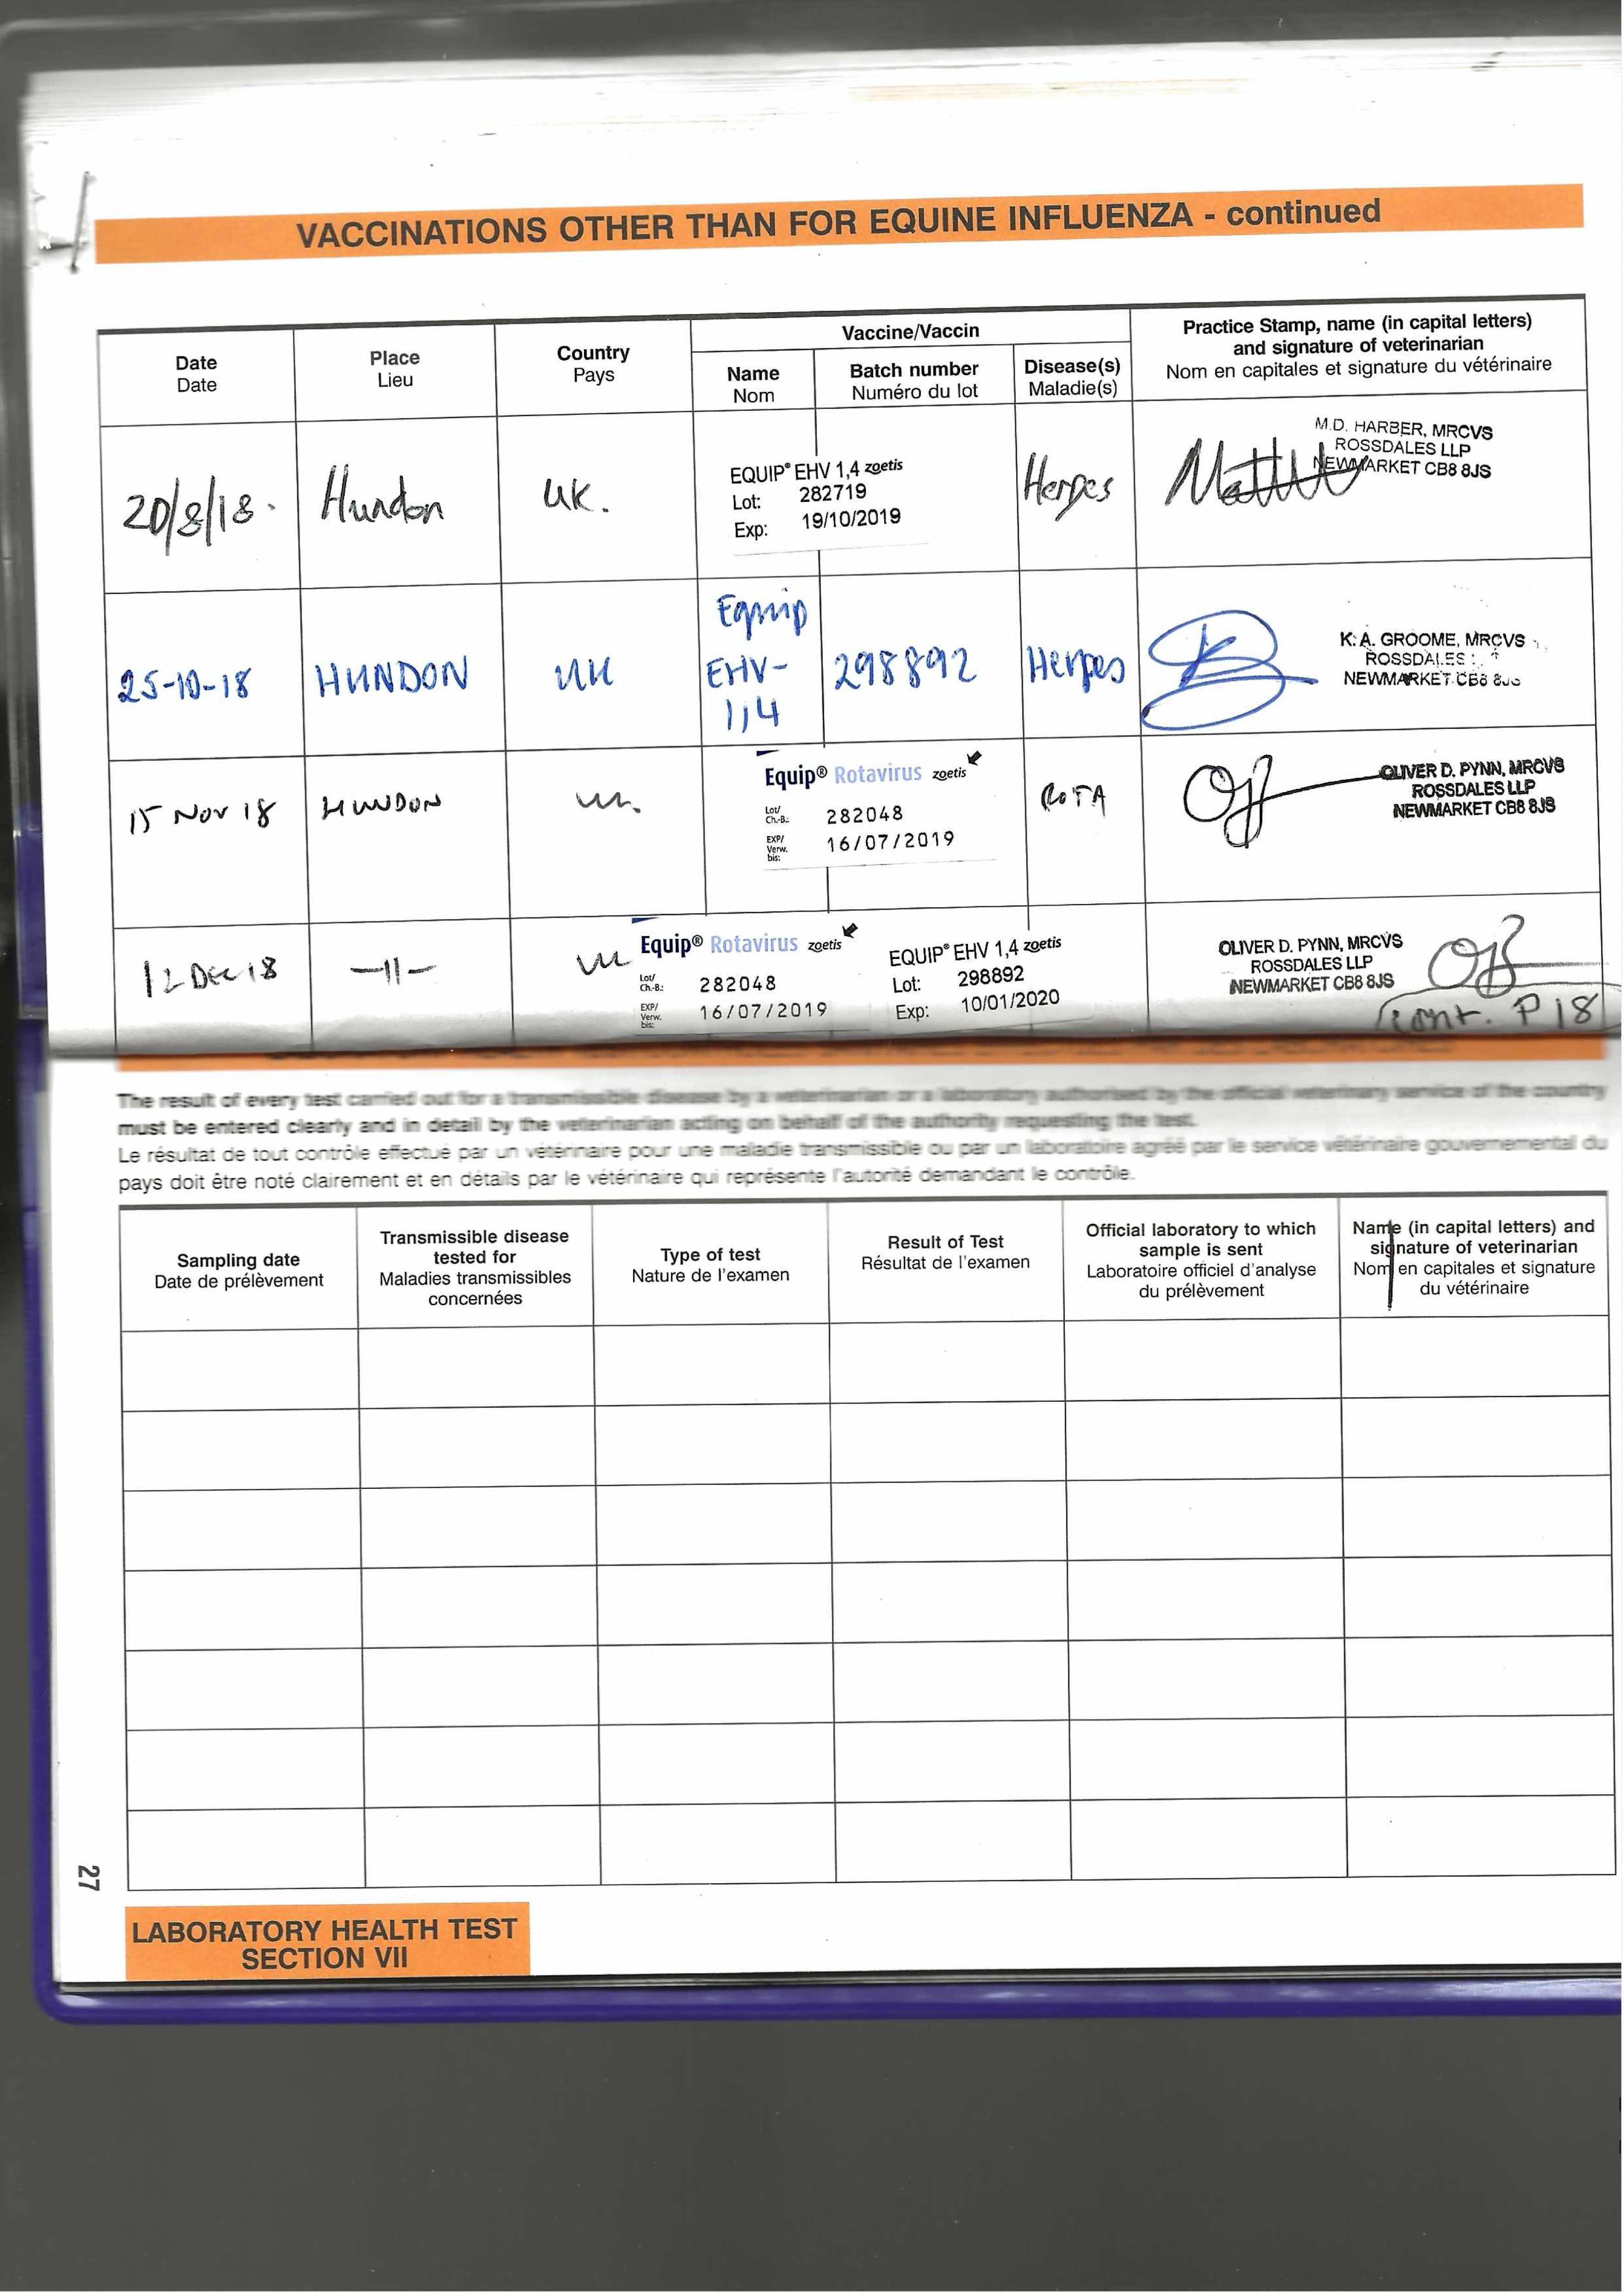 VACCINATIONS OTHER THAN FOR EQUINE INFLUENZA - continued
Date
Date
Place
Lieu
Country
Pays
Vaccine/Vaccin
Name
Nom
Batch number
Numéro du lot
Disease(s)
Maladie(s)
Practice Stamp, name (in capital letters)
and signature of veterinarian
Nom en capitales et signature du vétérinaire
20/8/18.
Hundon
UK.
EQUIP® EHV 1,4 zoetis
Lot: 282719
Exp: 19/10/2019
Herpes
M.D. HARBER, MRCVS
ROSSDALES LLP
NEWMARKET CB8 8JS
25-10-18
HUNDON
UK
Equip
EHV-
1,4
298892
Herpes
K.A. GROOME, MRCVS
ROSSDALES
NEWMARKET CB8 8JS
15 Nov 18
HUNDON
Equip® Rotavirus zoetis
Lot/
Ch.-B.: 282048
EXP/
Verw.
bis: 16/07/2019
ROTA
OLIVER D. PYNN, MRCVS
ROSSDALES LLP
NEWMARKET CB8 8JS
12 Dec 18
—11—
Equip® Rotavirus zoetis
Lot/
Ch.-B.: 282048
EXP/
Verw.
bis: 16/07/2019
EQUIP® EHV 1,4 zoetis
Lot: 298892
Exp: 10/01/2020
OLIVER D. PYNN, MRCVS
ROSSDALES LLP
NEWMARKET CB8 8JS
cont. P18
The result of every test carried out for a transmissible disease by a veterinarian or a laboratory authorised by the official veterinary service of the country
must be entered clearly and in detail by the veterinarian acting on behalf of the authority requesting the test.
Le résultat de tout contrôle effectué par un vétérinaire pour une maladie transmissible ou par un laboratoire agréé par le service vétérinaire gouvernemental du
pays doit être noté clairement et en détails par le vétérinaire qui représente l'autorité demandant le contrôle.
Sampling date
Date de prélèvement
Transmissible disease
tested for
Maladies transmissibles
concernées
Type of test
Nature de l'examen
Result of Test
Résultat de l'examen
Official laboratory to which
sample is sent
Laboratoire officiel d'analyse
du prélèvement
Name (in capital letters) and
signature of veterinarian
Nom en capitales et signature
du vétérinaire
27
LABORATORY HEALTH TEST
SECTION VII